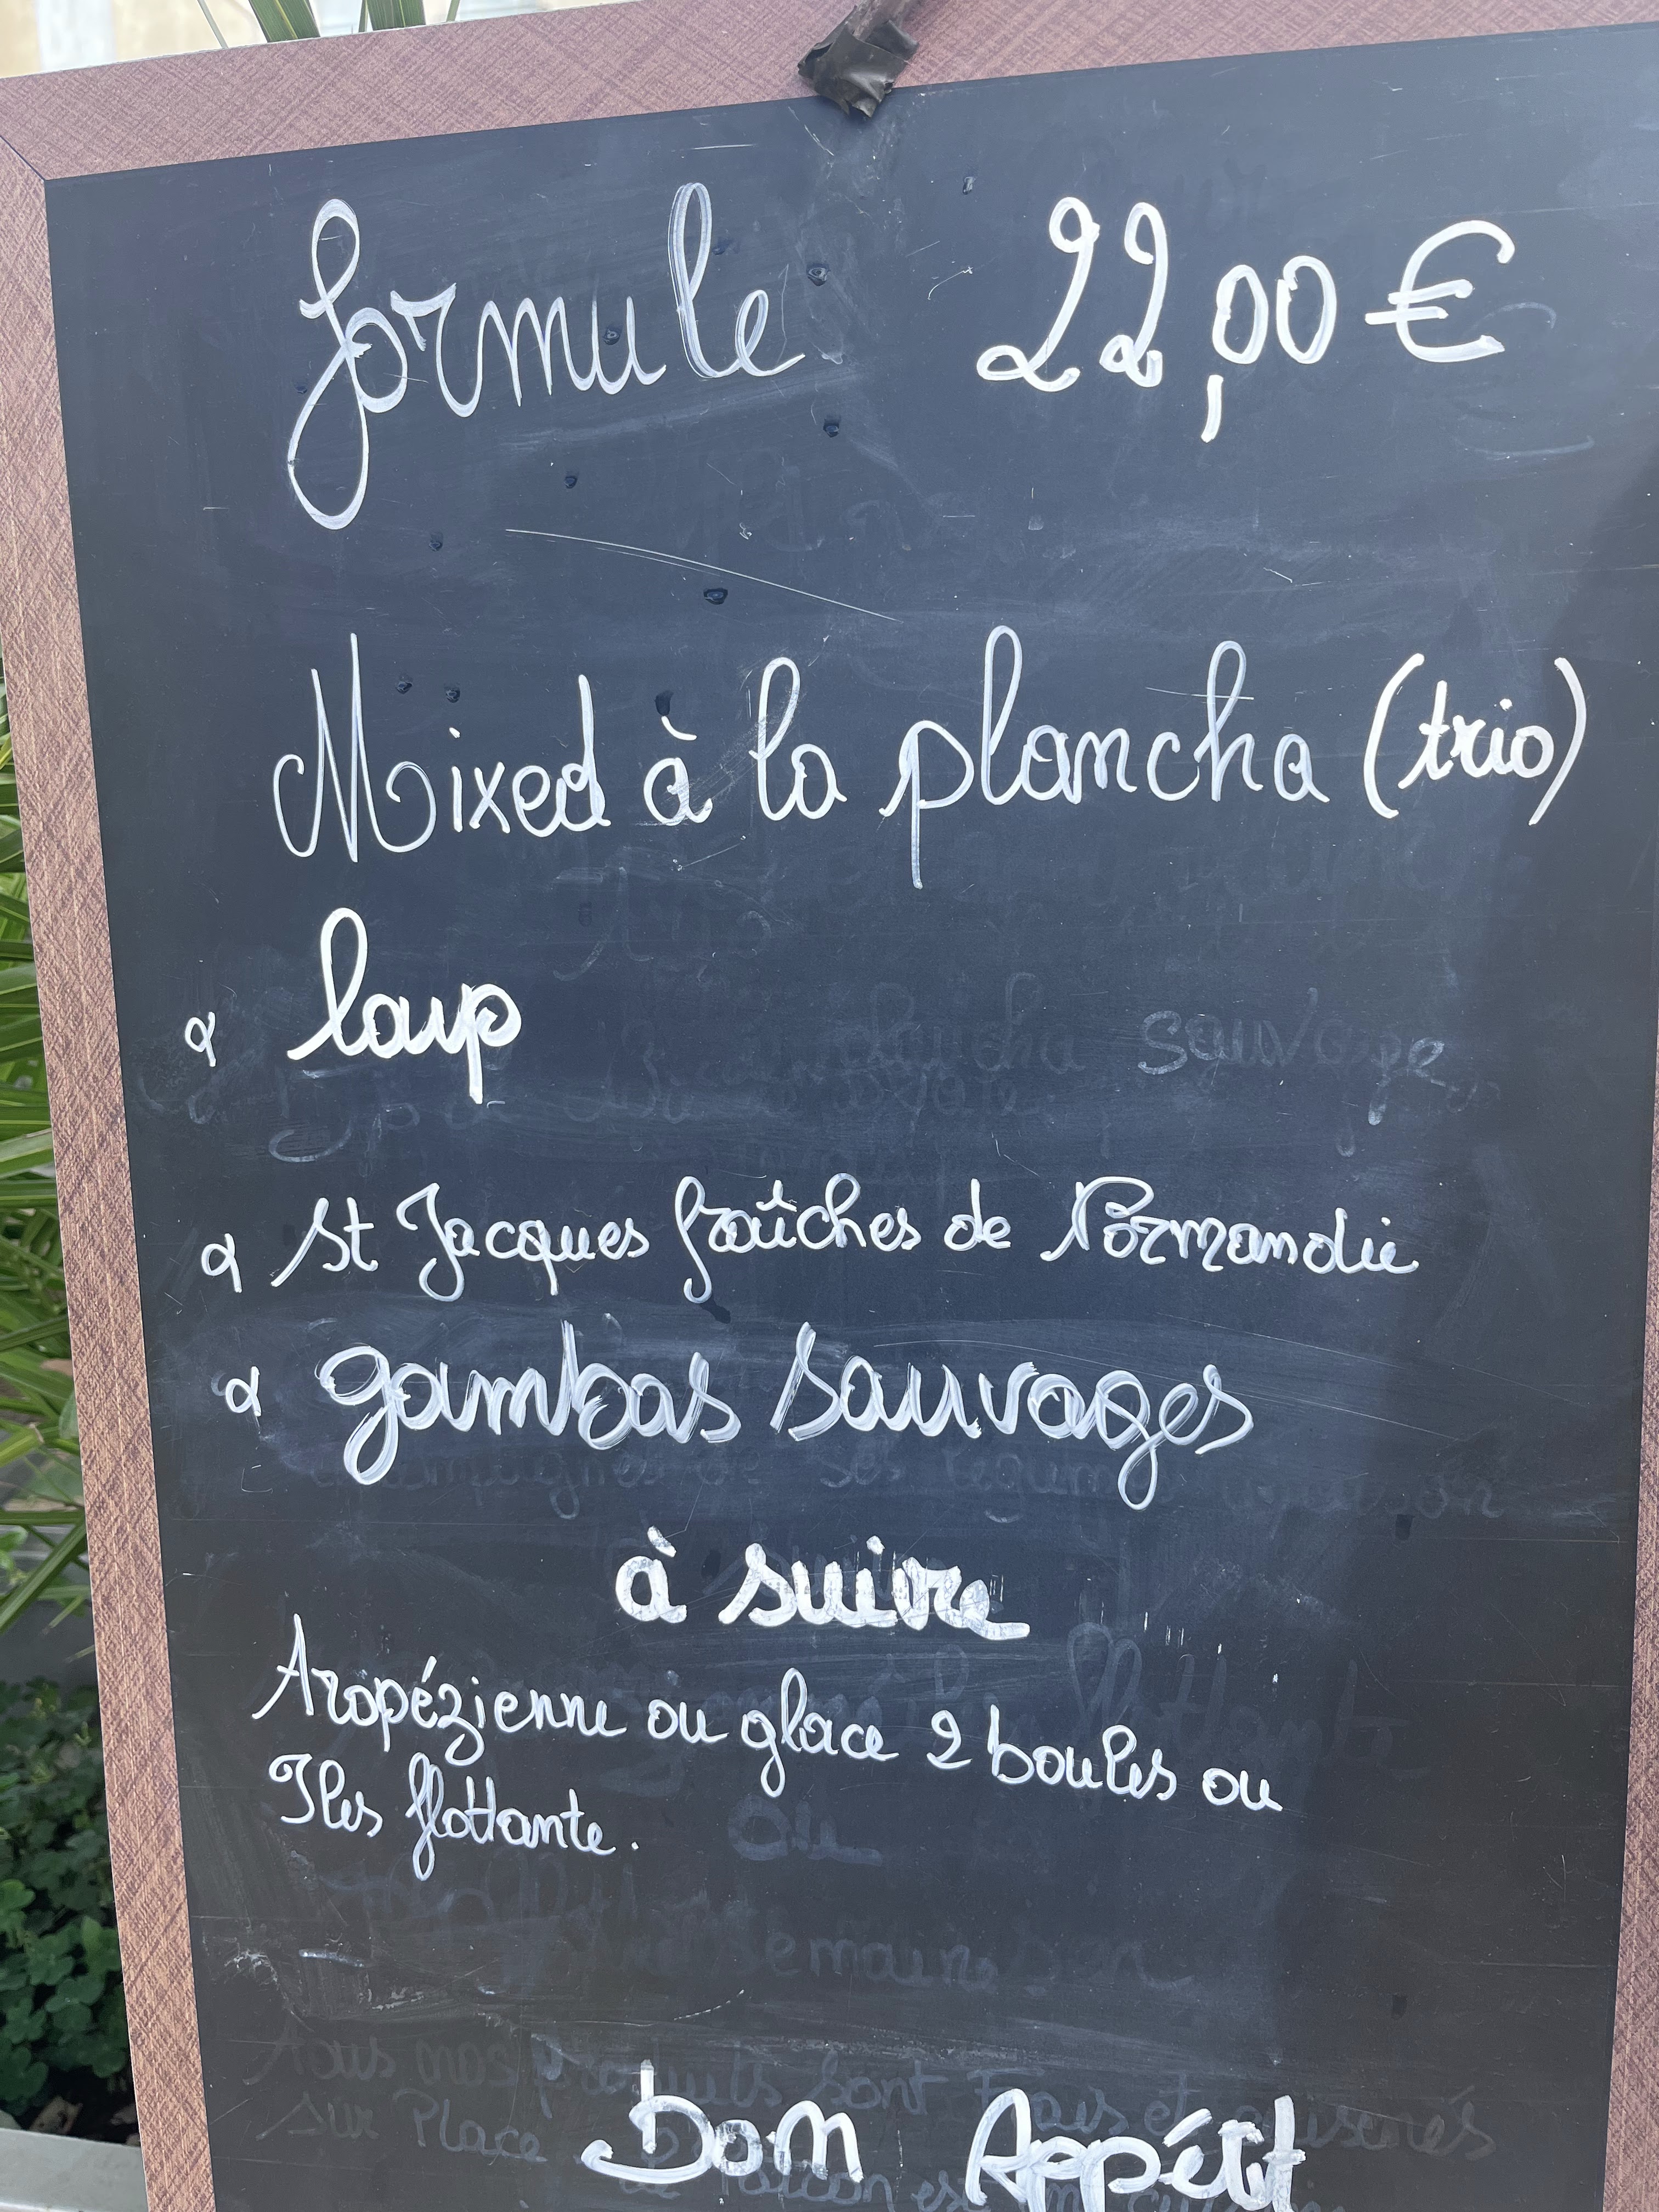 formule 22,00 €
Mixed à la plancha (trio)
loup
St Jacques fraîches de Normandie
gambas sauvages
à suivre
Tropézienne ou glace 2 boules ou
Iles flottante.
Bon Appétit